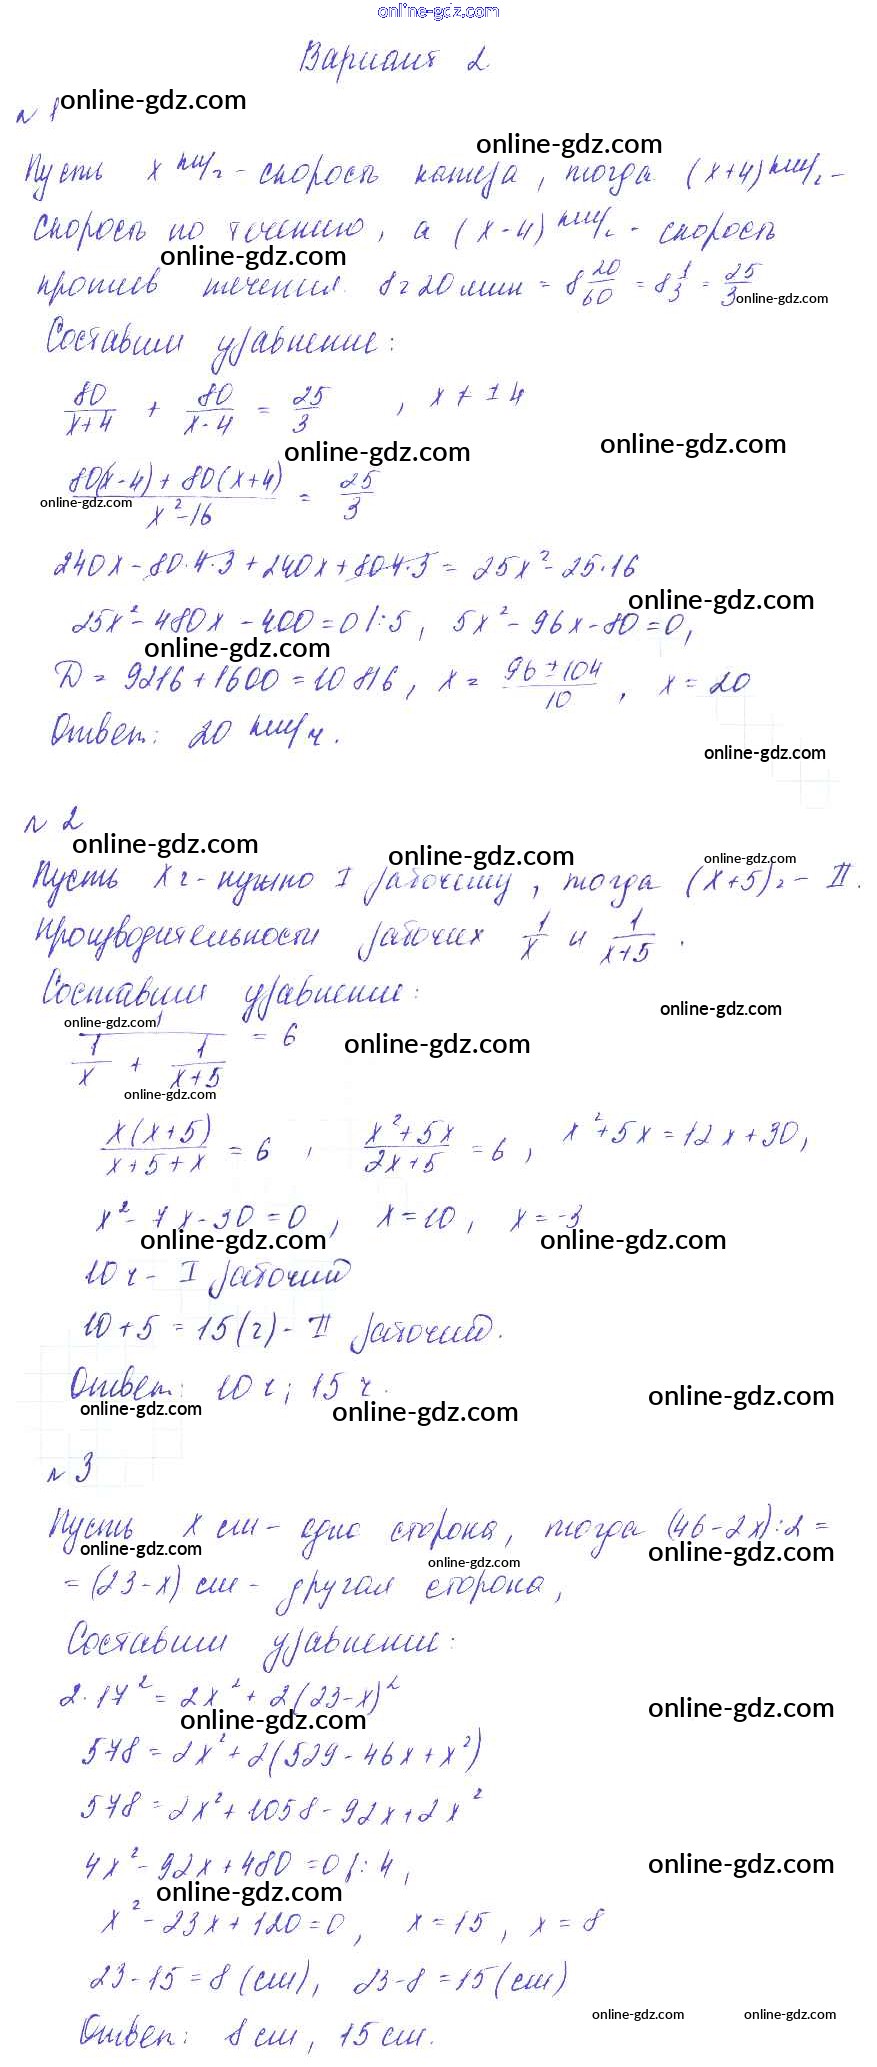 online-gdz.com
Вариант 2
№ 1 online-gdz.com
online-gdz.com
Пусть x км/ч - скорость катера, тогда (x+4) км/ч -
скорость по течению, а (x-4) км/ч - скорость
online-gdz.com
против течения. 8ч 20мин = 8 20/60 = 8 1/3 = 25/3
online-gdz.com
Составим уравнение:
80/(x+4) + 80/(x-4) = 25/3 , x ≠ ±4
online-gdz.com online-gdz.com
(80(x-4) + 80(x+4))/(x²-16) = 25/3
online-gdz.com
240x - 80·4·3 + 240x + 80·4·3 = 25x² - 25·16
online-gdz.com
25x² - 480x - 400 = 0 |:5, 5x² - 96x - 80 = 0,
online-gdz.com
D = 9216 + 1600 = 10816, x = (96 ± 104)/10, x = 20
Ответ: 20 км/ч.
online-gdz.com
№ 2
online-gdz.com online-gdz.com online-gdz.com
Пусть x ч - нужно I рабочему, тогда (x+5) ч - II.
Производительности рабочих 1/x и 1/(x+5).
Составим уравнение:
online-gdz.com online-gdz.com
1/(1/x + 1/(x+5)) = 6
online-gdz.com
online-gdz.com
x(x+5)/(x+5+x) = 6 , (x²+5x)/(2x+5) = 6, x²+5x = 12x+30,
x² - 7x - 30 = 0, x = 10, x = -3
online-gdz.com online-gdz.com
10 ч - I рабочий
10 + 5 = 15 (ч) - II рабочий.
Ответ: 10 ч; 15 ч.
online-gdz.com online-gdz.com online-gdz.com
№ 3
Пусть x см - одна сторона, тогда (46-2x):2 =
online-gdz.com online-gdz.com online-gdz.com
= (23-x) см - другая сторона,
Составим уравнение:
2·17² = 2x² + 2(23-x)²
online-gdz.com online-gdz.com
578 = 2x² + 2(529 - 46x + x²)
578 = 2x² + 1058 - 92x + 2x²
4x² - 92x + 480 = 0 |:4,
online-gdz.com online-gdz.com
x² - 23x + 120 = 0, x = 15, x = 8
23 - 15 = 8 (см), 23 - 8 = 15 (см)
online-gdz.com online-gdz.com
Ответ: 8 см, 15 см.